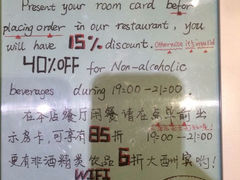 Present your room card before
placing order in our restaurant, you
will have 15% discount. Otherwise it's invalid
40%OFF for Non-alcoholic
beverages during 19:00-21:00.
在本店餐厅用餐请在点单前出
示房卡,可享有85折 19:00-21:00
更有非酒精类饮品6折大酬宾哟!
WIFI